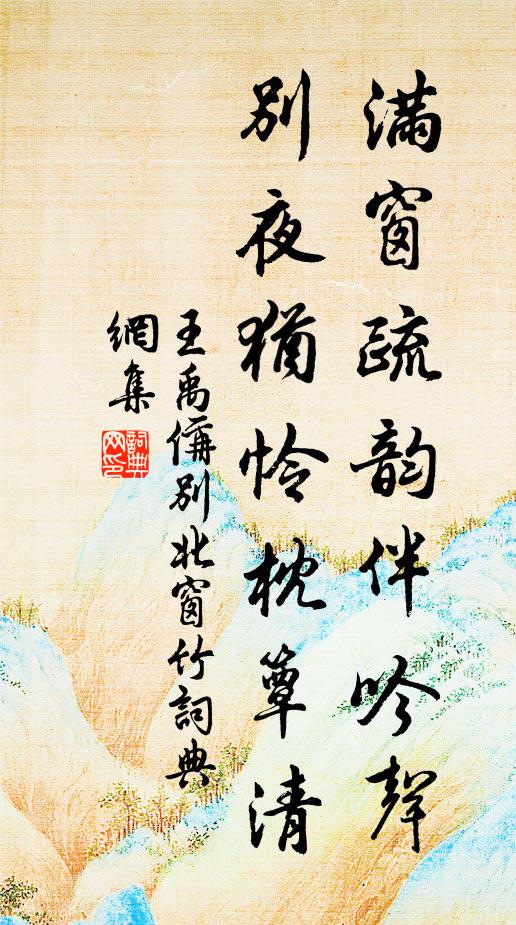 滿窗疏韵伴吟聲
別夜猶怜枕簟清
王禹偁別北窗竹詞典
網集
詞典
网印